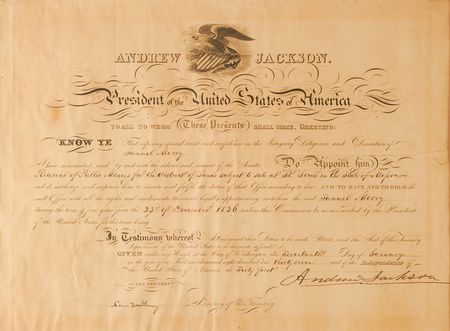 ANDREW JACKSON.
President of the United States of America
TO ALL TO WHOM (These Presents) SHALL COME, GREETING:
KNOW YE That reposing special trust and confidence in the Integrity Diligence and Discretion of
Samuel Merry
I have nominated, and by and with the advice and consent of the Senate Do Appoint him
Receiver of Public Moneys for the district of Lands subject to sale at St. Louis in the State of Missouri
and do authorize and empower him to execute and fulfil the duties of that Office according to law: AND TO HAVE AND TO HOLD the
said Office with all the rights and emoluments thereunto legally appertaining unto him the said Samuel Merry
during the term of four years from the 23rd of December 1836 unless this Commission be sooner revoked by the President
of the United States for the time being.
In Testimony whereof I have caused these Letters to be made Patent, and the Seal of the Treasury
Department of the United States to be hereunto affixed.
GIVEN under my Hand at the City of Washington the Seventeenth Day of January
in the year of our Lord one thousand eight hundred and thirty seven and of the Independence of
the United States of America the Sixty first
Andrew Jackson
BY THE PRESIDENT
Levi Woodbury Secretary of the Treasury